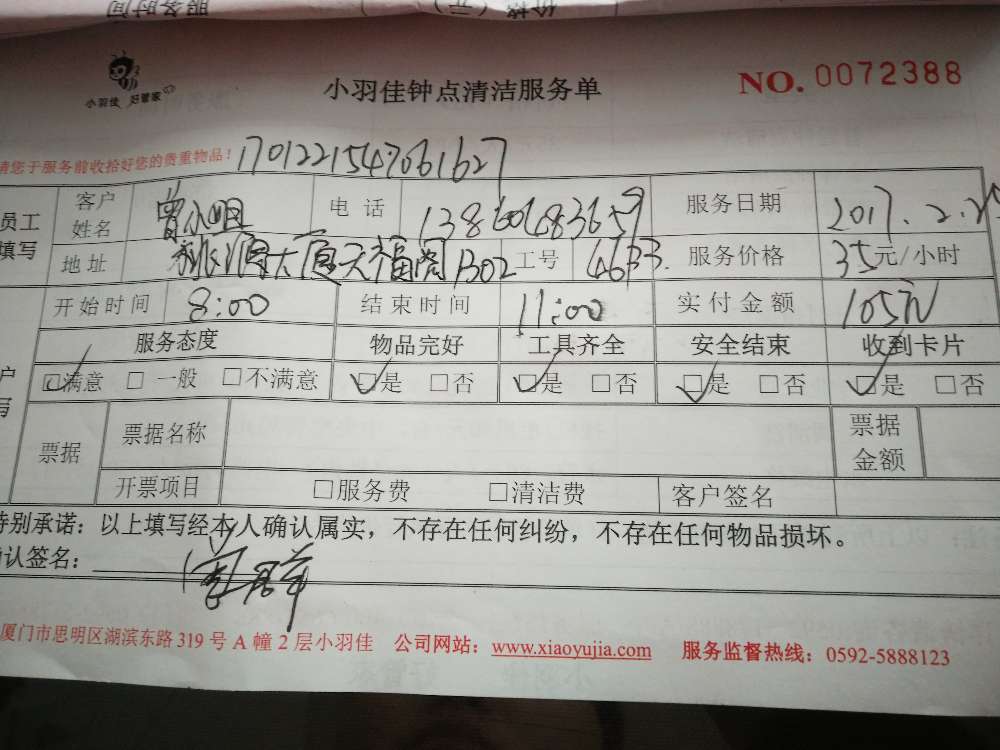 服务时间 价格（元）
小羽佳 好管家
小羽佳钟点清洁服务单
NO. 0072388
请您于服务前收拾好您的贵重物品！ 1701221547061627
员工填写 客户姓名 电话 服务日期 2017.2.2
地址 大厦天福阁B02 工号 4633. 服务价格 35元/小时
开始时间 8:00 结束时间 11:00 实付金额 105元
服务态度 物品完好 工具齐全 安全结束 收到卡片
☑满意 □一般 □不满意 ☑是 □否 ☑是 □否 ☑是 □否 ☑是 □否
票据 票据名称 票据金额
开票项目 □服务费 □清洁费 客户签名
特别承诺：以上填写经本人确认属实，不存在任何纠纷，不存在任何物品损坏。
确认签名：
厦门市思明区湖滨东路319号A幢2层小羽佳 公司网站：www.xiaoyujia.com 服务监督热线：0592-5888123